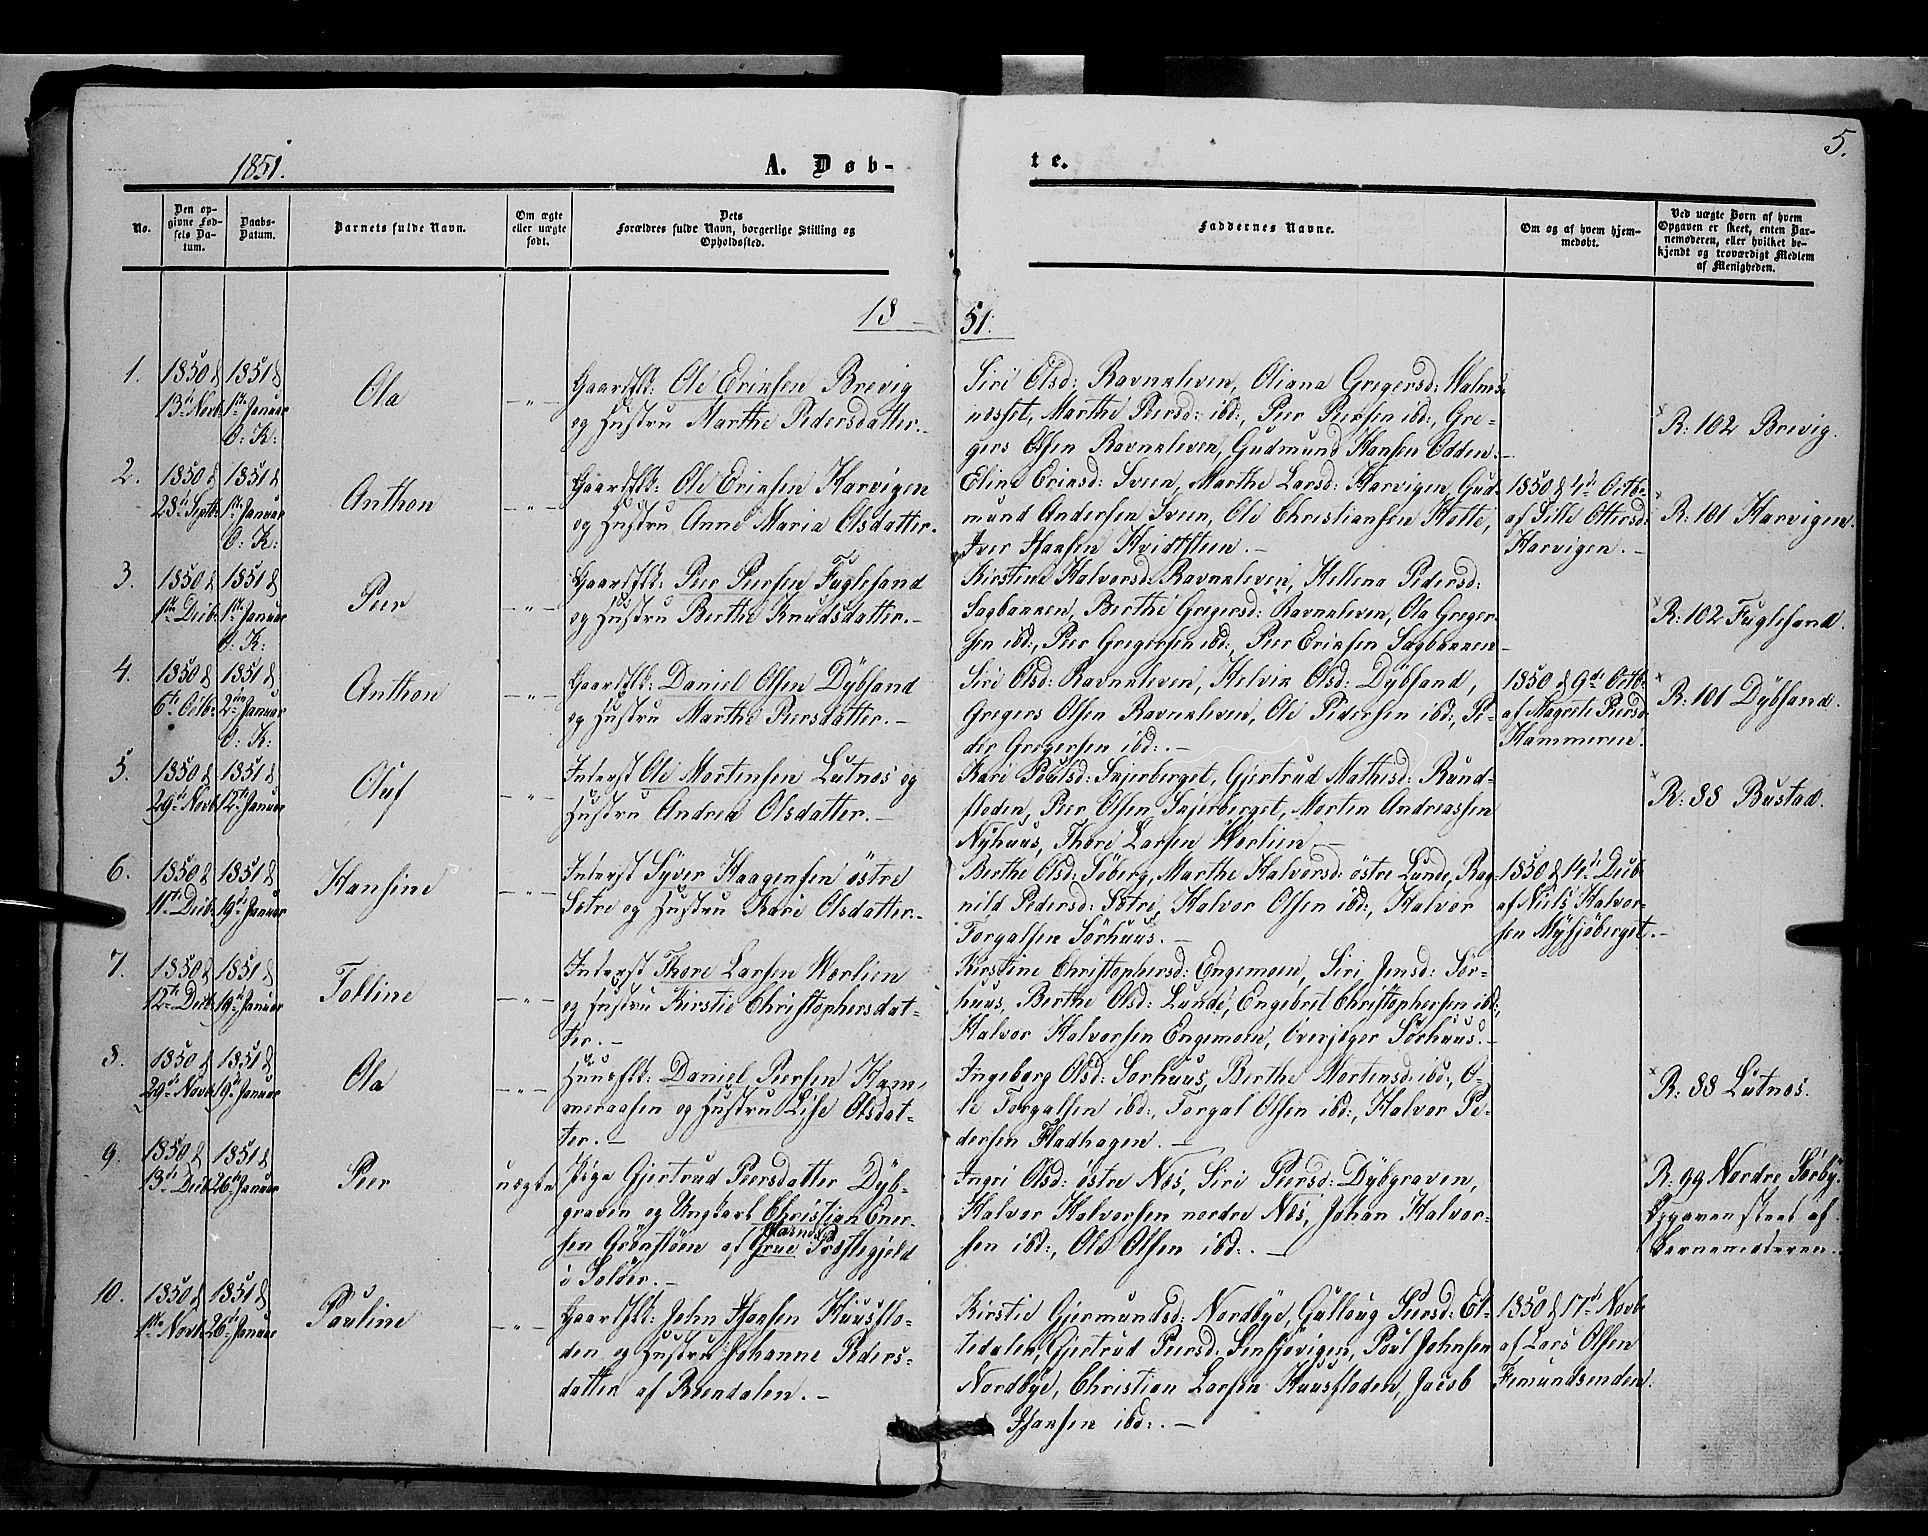 1851.
A. Døb-
te.
5.
No.
Den op-
givne Fød-
sels Da-
tum.
Daabs-
Datum.
Barnets fulde Navn.
Om ægte
eller uægte
født.
Dets
Forældres fulde Navn, borgerlige Stilling og
Opholdssted.
Faddernes Navne.
Om og af hvem hjem-
medøbt.
Ved uægte Børn af hvem
Opgaven er skeet, enten Bar-
nemoderen, eller hvilket be-
kjendt og troværdigt Medlem
af Menigheden.
18 - 51.
1.
1850 d.
13de Novbr
1851 d.
1ste Januar
O: K:
Ola
- " -
Gaardsk: Ole Eriksen Brevig
og Hustru Marthe Pedersdatter. -
Siri Olsd: Ravnaleven, Oliana Gregersd: Malms-
nesset, Marthe Peersd: ibd:, Peer Peersen ibd:, Gre-
gers Olsen Ravnaleven, Gudmund Hansen Odden. -
R: 102 Brevig.
2.
1850 d
28de Septbr
1851 d
1ste Januar
O: K:
Anthon
- " -
Gaardsk: Ole Eriksen Harvigen
og Hustru Anne Maria Olsdatter. -
Eline Eriksd: Sveen, Marthe Larsd: Harvigen, Gud-
mund Andersen Sveen, Ole Christiansen Kolte,
Iver Hansen Kvidsteen. -
1850 d 4de Octb.
af Sille Ottersd:
Harvigen. -
R: 101 Harvigen.
3.
1850 d
1ste Decbr
1851 d
1ste Januar
O: K:
Peer
- " -
Gaardsk: Peer Peersen Fuglesand
og Hustru Berthe Knudsdatter. -
Kirstine Halvorsd: Ravnaleven, Hellena Pedersd:
Sagbakken, Berthe Gregersd: Ravnaleven, Ola Greger-
sen ibd:, Peer Gregersen ibd:, Peer Eriksen Sagbakken -
R: 102 Fuglesand.
4.
1850 d
6te Octbr
1851 d
2den Januar
O: K:
Anthon
- " -
Gaardsk: Daniel Olsen Dybsand
og Hustru Marthe Peersdatter. -
Siri Olsd: Ravnaleven, Helvia Olsd: Dybsand,
Gregers Olsen Ravnaleven, Ole Pedersen ibd:, Pe-
der Gregersen ibd:. -
1850 d 9de Octb.
af Magrete Peersd
Hammeren.
R: 101 Dybsand.
5.
1850 d
29de Novbr
1851 d
12te Januar
Oluf
- " -
Inderst Ole Mortensen Lutnæs og
Hustru Andrea Olsdatter. -
Kari Poulsd: Skjerberget, Gjertrud Mathisd: Rund-
floden, Peer Olsen Skjerberget, Morten Andreassen
Nyhuus, Thore Larsen Vorlien -
R: 88 Bustad.
6.
1850 d
11te Decbr
1851 d
19de Januar
Hansine
- " -
Inderst Syver Haagensen østre
Sætre og Hustru Kari Olsdatter. -
Berthe Olsd: Søberg, Marthe Halvorsd: østre Lunde, Rag-
nild Pedersd: Sætre, Halvor Olsen ibd:, Halvor
Torgalsen Sørhuus. -
1850 d 14de Decbr
af Niels Halvor-
sen Mysjøberget. -
7.
1850 d
12te Decbr
1851 d
19de Januar
Tolline
- " -
Inderst Thore Larsen Vorlien
og Hustru Kirstie Christophersdat-
ter. -
Kirstine Christophersd: Engemoen, Siri Jensd: Sør-
huus, Berthe Olsd: Lunde, Engebret Christophersen ibd:,
Halvor Halvorsen Engemoen, Overjæger Sørhuus. -
8.
1850 d
29de Novbr
1851 d
19de Januar
Ola
- " -
Huussk: Daniel Peersen Ham-
meraasen og Hustru Lise Olsdat-
ter. -
Ingeborg Olsd: Sørhuus, Berthe Mortensd: ibd:, O-
le Torgalsen ibd:, Torgal Olsen ibd:, Halvor Pe-
dersen Fladhagen. -
R: 88 Lutnæs.
9.
1850 d
13de Decbr
1851 d
26de Januar
Peer
uægte
Pige Gjertrud Peersdatter Dyb-
graven og Ungkarl Christian Ener-
sen Grønstøen af Grue Præstegjeld
i Solør. -
Ingri Olsd: østre Næs, Siri Peersd: Dybgraven,
Halvor Halvorsen nordre Næs, Johan Halvor-
sen ibd:, Ole Olsen ibd:. -
R: 99 Nordre Sørby.
Opgaven skeet af
Barnemoderen.
10.
1850 d
1ste Novbr
1851 d
26de Januar
Pauline
- " -
Gaardsk: John Hansen Huusflo-
den og Hustru Johanne Peders-
datter af Reendalen. -
Kirstie Gjermundsd: Nordbye, Gulloug Peersd: El-
tedalen, Gjertrud Peersd: Sensjøvigen, Poul Johnsen
Nordbye, Christian Larsen Huusfloden, Jacob
Hansen ibd:. -
1850 d 17de Novbr
af Lars Olsen
Femundsenden.